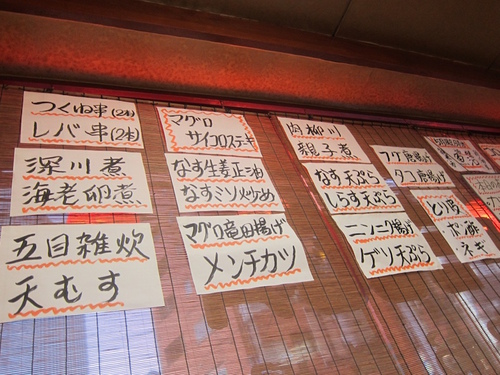 つくね串(2本)
レバー串(2本)
深川煮
海老卵煮
五目雑炊
天むす
マグロ
サイコロステーキ
なす生姜正油
なすミソ炒め
マグロ竜田揚げ
メンチカツ
肉柳川
親子煮
なす天ぷら
しらす天ぷら
ニンニク揚げ
ゲソ天ぷら
フグ唐揚げ
タコ唐揚げ
ネギ